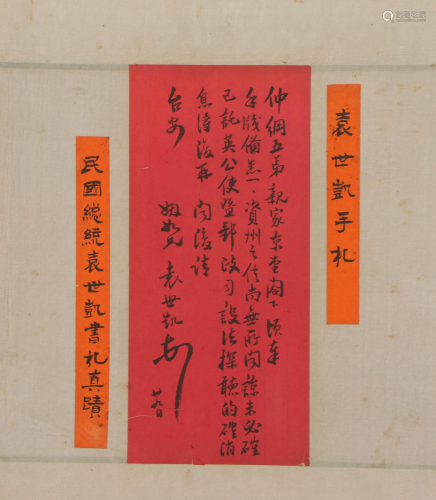 袁世凱手札
仲綱五弟親家大人閣下頃奉
手牋備悉一一資州之信尚無所聞諒未必確
已託英公使暨郵政司設法探聽的確消
息得後再聞復請
台安
姻如兄袁世凱
廿九日
民國總統袁世凱書札真蹟